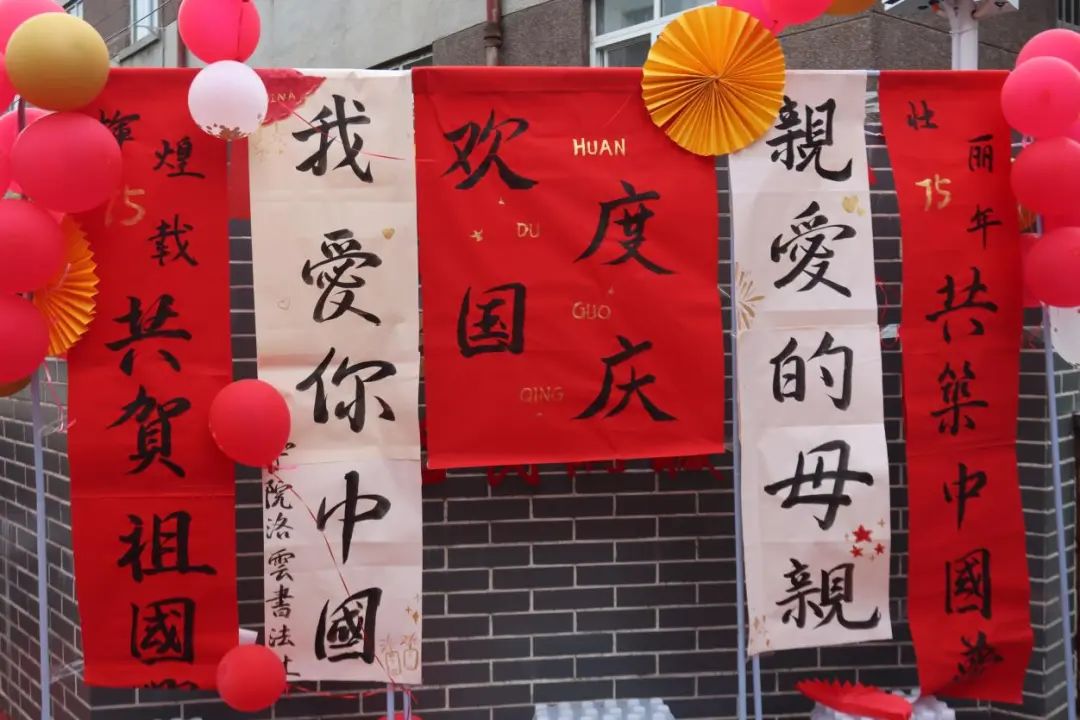 輝煌75載共賀祖國
我愛你中國
院洛雲書法
欢度国庆
HUAN
DU
GUO
QING
親愛的母親
壮丽75年共築中國夢